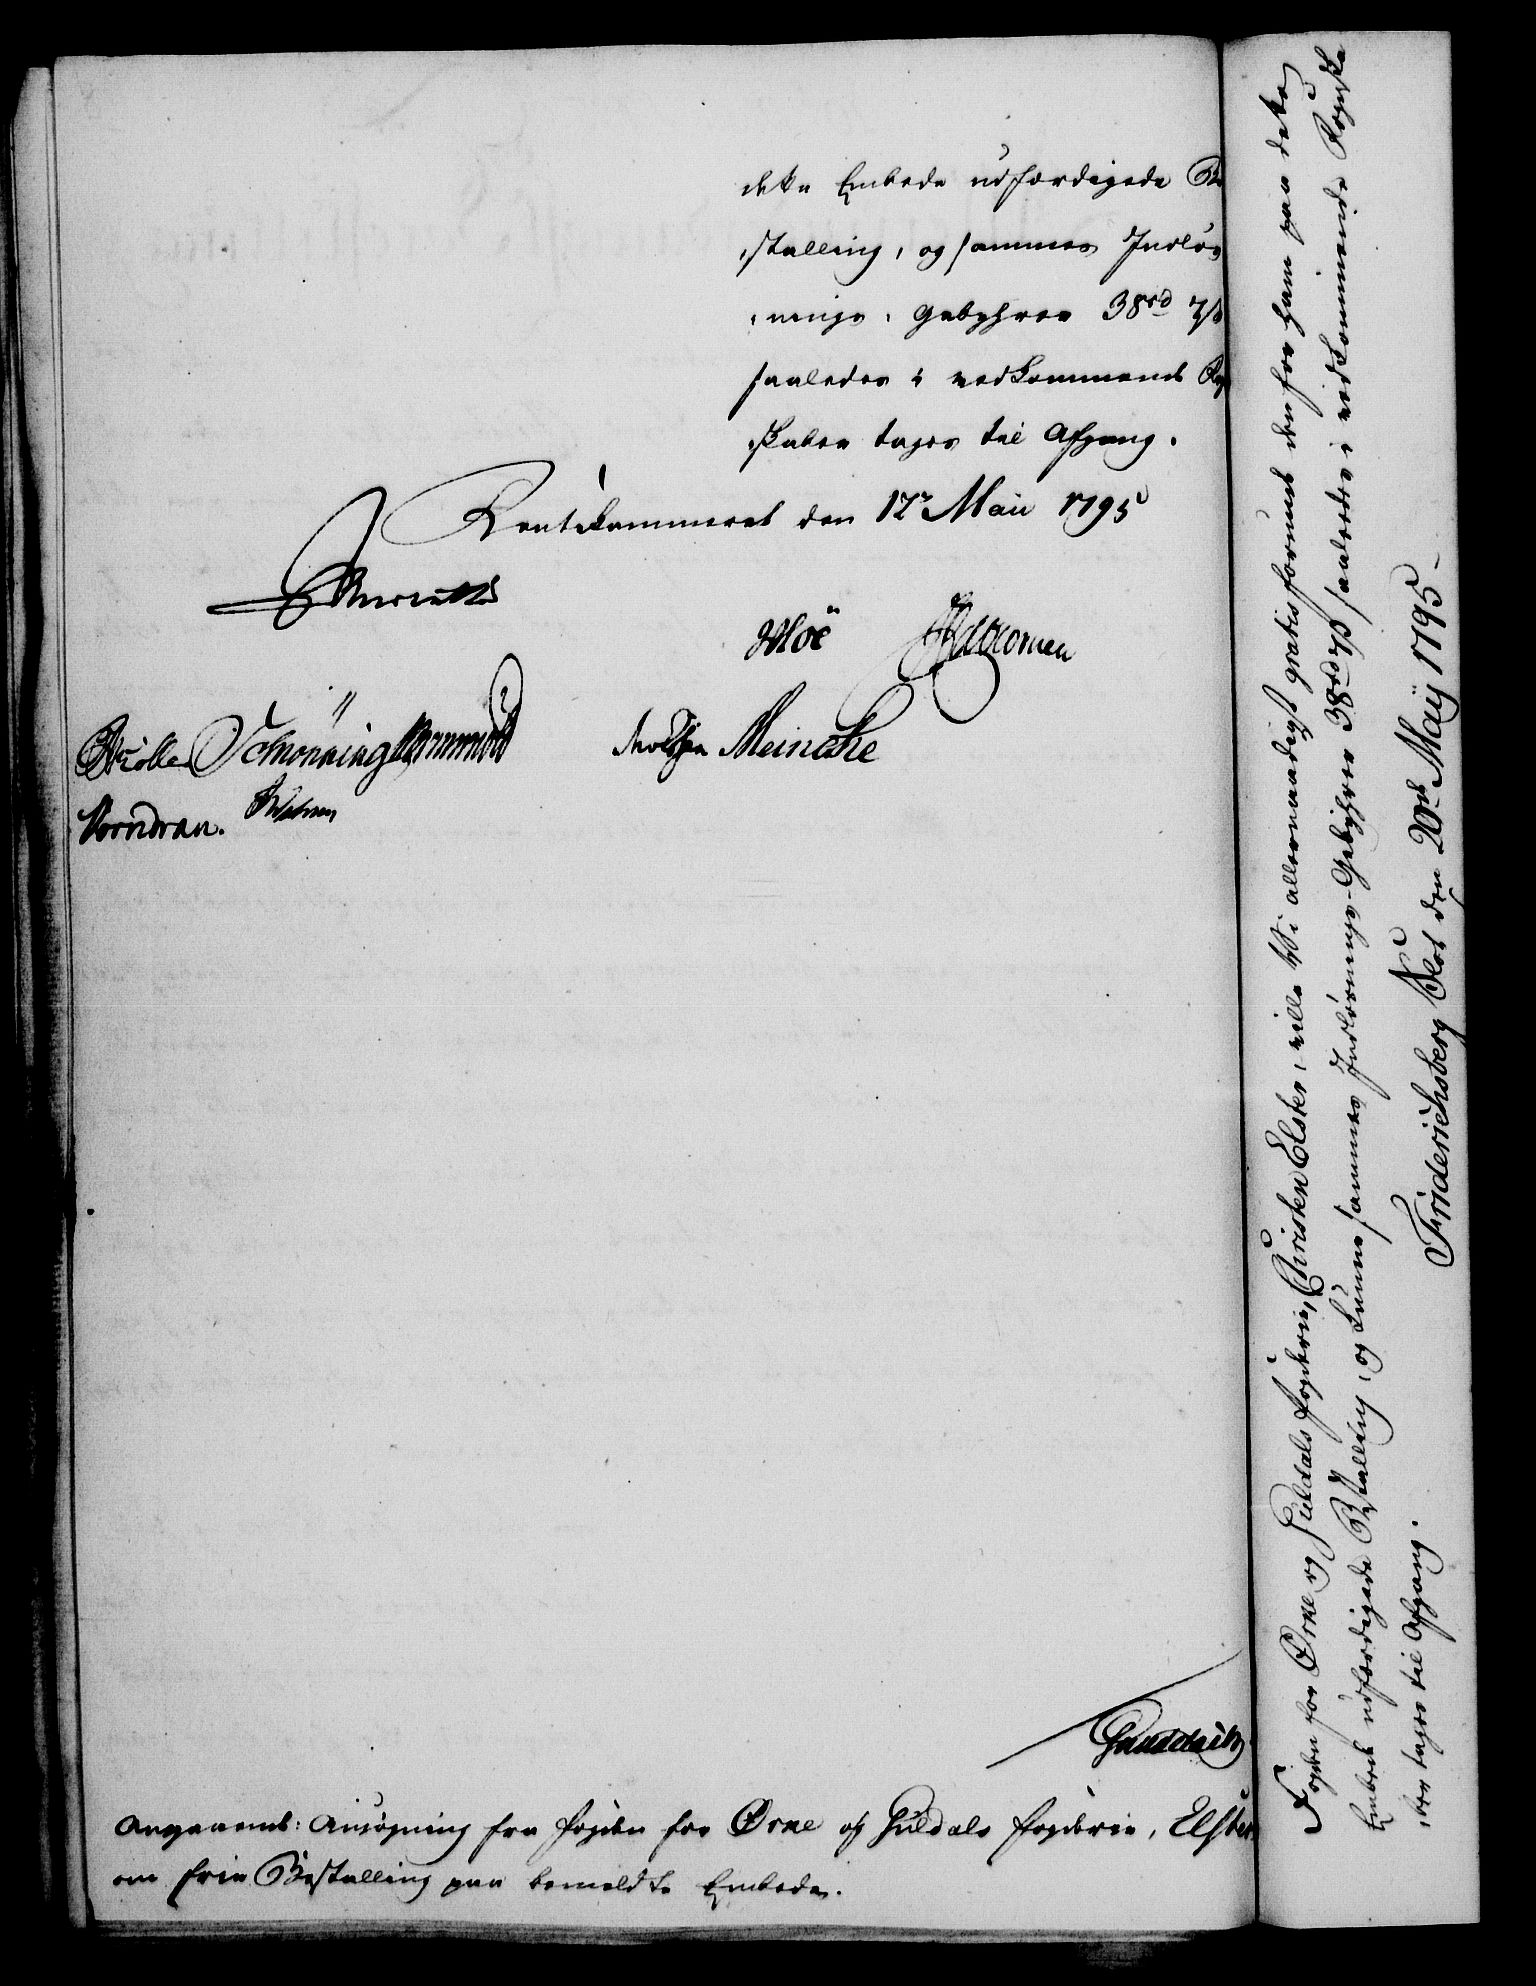 dette Embede udfærdigede Be
stalling, og sammes Indløs
nings-Gebyhrer 38rd 7ß
saaledes i vedkommende Reg
skaber tages til Afgang.
Rentekammeret den 12te Maii 1795
Moe
Schönning
Meincke
Vorndran.
Angaaende: Ansøgning fra Fogden for Ørke og Guldals Fogderie, Elster
om frie Bestalling paa bemeldte Embede.
Fogden for Ørke og Guldals Fogderie, Christen Elster, ville Vi allernaadigst gratis forunde den for ham paa dette
Embede udfærdigede Bestalling, og kunne sammes Indløsnings-Gebyhrer 38rd 7ß saaledes i vedkommende Regnska
ber tages til Afgang.
Friderichsberg Slot den 20de Maij 1795